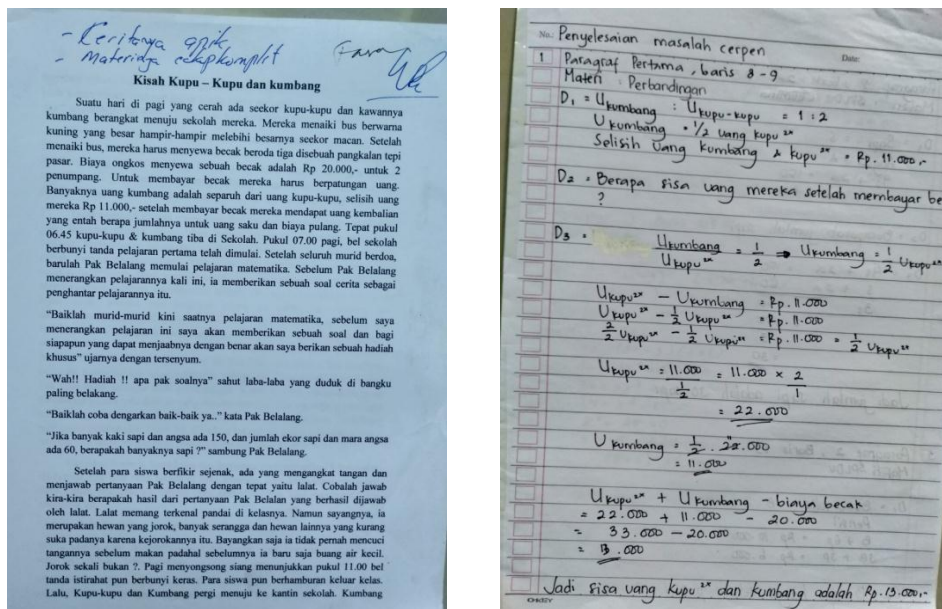 - Ceritanya apik
- Materinya cukup komplit
Kisah Kupu – Kupu dan kumbang
Suatu hari di pagi yang cerah ada seekor kupu-kupu dan kawannya
kumbang berangkat menuju sekolah mereka. Mereka menaiki bus berwarna
kuning yang besar hampir-hampir melebihi besarnya seekor macan. Setelah
menaiki bus, mereka harus menyewa becak beroda tiga disebuah pangkalan tepi
pasar. Biaya ongkos menyewa sebuah becak adalah Rp 20.000,- untuk 2
penumpang. Untuk membayar becak mereka harus berpatungan uang.
Banyaknya uang kumbang adalah separuh dari uang kupu-kupu, selisih uang
mereka Rp 11.000,- setelah membayar becak mereka mendapat uang kembalian
yang entah berapa jumlahnya untuk uang saku dan biaya pulang. Tepat pukul
06.45 kupu-kupu & kumbang tiba di Sekolah. Pukul 07.00 pagi, bel sekolah
berbunyi tanda pelajaran pertama telah dimulai. Setelah seluruh murid berdoa,
barulah Pak Belalang memulai pelajaran matematika. Sebelum Pak Belalang
menerangkan pelajarannya kali ini, ia memberikan sebuah soal cerita sebagai
penghantar pelajarannya itu.
“Baiklah murid-murid kini saatnya pelajaran matematika, sebelum saya
menerangkan pelajaran ini saya akan memberikan sebuah soal dan bagi
siapapun yang dapat menjaabnya dengan benar akan saya berikan sebuah hadiah
khusus” ujarnya dengan tersenyum.
“Wah!! Hadiah !! apa pak soalnya” sahut laba-laba yang duduk di bangku
paling belakang.
“Baiklah coba dengarkan baik-baik ya..” kata Pak Belalang.
“Jika banyak kaki sapi dan angsa ada 150, dan jumlah ekor sapi dan mara angsa
ada 60, berapakah banyaknya sapi ?” sambung Pak Belalang.
Setelah para siswa berfikir sejenak, ada yang mengangkat tangan dan
menjawab pertanyaan Pak Belalang dengan tepat yaitu lalat. Cobalah jawab
kira-kira berapakah hasil dari pertanyaan Pak Belalan yang berhasil dijawab
oleh lalat. Lalat memang terkenal pandai di kelasnya. Namun sayangnya, ia
merupakan hewan yang jorok, banyak serangga dan hewan lainnya yang kurang
suka padanya karena kejorokannya itu. Bayangkan saja ia tidak pernah mencuci
tangannya sebelum makan padahal sebelumnya ia baru saja buang air kecil.
Jorok sekali bukan ?. Pagi menyongsong siang menunjukkan pukul 11.00 bel
tanda istirahat pun berbunyi keras. Para siswa pun berhamburan keluar kelas.
Lalu, Kupu-kupu dan Kumbang pergi menuju ke kantin sekolah. Kumbang
No.: Penyelesaian masalah cerpen Date:
1 Paragraf Pertama, baris 8 - 9
Materi : Perbandingan
D1 = Ukumbang : Ukupu-kupu = 1 : 2
Ukumbang = 1/2 uang kupu 2x
Selisih Uang kumbang & kupu 2x = Rp. 11.000,-
D2 = Berapa sisa uang mereka setelah membayar be
?
D3 = Ukumbang / Ukupu 2x = 1/2 ⇒ Ukumbang = 1/2 Ukupu 2x
Ukupu 2x - Ukumbang = Rp. 11.000
Ukupu 2x - 1/2 Ukupu 2x = Rp. 11.000
2/2 Ukupu 2x - 1/2 Ukupu 2x = Rp. 11.000 = 1/2 Ukupu 2x
Ukupu 2x = 11.000 / 1/2 = 11.000 × 2/1
= 22.000
Ukumbang = 1/2 . 22.000
= 11.000
Ukupu 2x + Ukumbang - biaya becak
= 22.000 + 11.000 - 20.000
= 33.000 - 20.000
= 13.000
Jadi sisa uang kupu 2x dan kumbang adalah Rp. 13.000,-